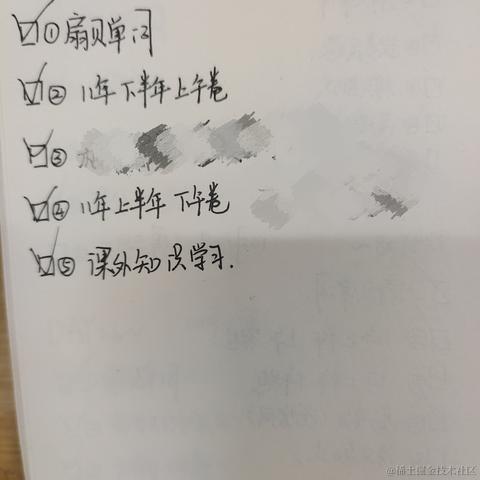 ☑① 扇贝单词
☑② 11年下半年上午卷
☑③
☑④ 11年上半年 下午卷
☑⑤ 课外知识学习.
@稀土掘金技术社区